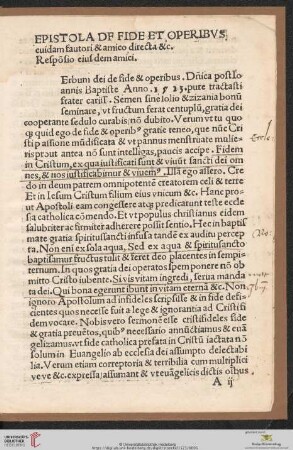 EPISTOLA DE FIDE ET OPERIBVS,
cuidam fautori & amico directa &c.
Respōsio eius dem amici.
Erbum dei de fide & operibus. Dñica post Io
annis Baptiste Anno. 1523. pure tractasti
frater cariss. Semen sine lolio & zizania bonū
seminare, vt fructum ferat centuplū, gratia dei
cooperante sedulo curabis, nō dubito. Verum vt tu quo
qȝ quid ego de fide & operibꝰ gratie teneo, que
ti passione mūdificata & vt pannus menstruate mulie-
ris prout antea nō sunt intelligas, paucis accipe. Fidem
in Cristum, ex qua iustificati sunt & viuūt sancti dei om
nes, & nos iustificabimur & viuemꝰ. Illā ego assero. Cre
do in deum patrem omnipotentē creatorem celi & terre
Et in Iesum Cristum filium eius vnicum &c. Hanc prout
Apostoli eam congessere atqȝ predicatunt teste eccle
sia catholica cōmendo. Et vt populus christianus eidem
salubriter ac firmiter adherere possit sentio. Hec in baptis
mate gratia spiritussancti infusa tandē ex auditu percep
ta. Non eni ex sola aqua, Sed ex aqua & spiritusancto
baptisamur fructus tulit & feret deo placentes in sempi-
ternum. In quos gratia dei operatos spem ponere nō ob
mitto Cristo iubente. Si vis vitam ingredi, serua manda
ta dei. Qui bona egerunt ibunt in vitam eternā &c. Non
ignoro Apostolum ad infideles scripsisse & in fide defi-
cientes quos necesse fuit a lege & ignorantia ad Cristi fi
dem vocare. Nobis vero sermonē esse cristifideles fide
& gratia preuētos, quibꝰ necessario annūctiamus & euā
gelizamus, vt fide catholica prefata in Cristū iactata nō
solum in Euangelio ab ecclesia dei assumpto delectabi
lia. Verum etiam correptoria & terribilia cum multiplici
ve ve &c. expressa, assumant & vt euāgelicis dictis osbus
A ij